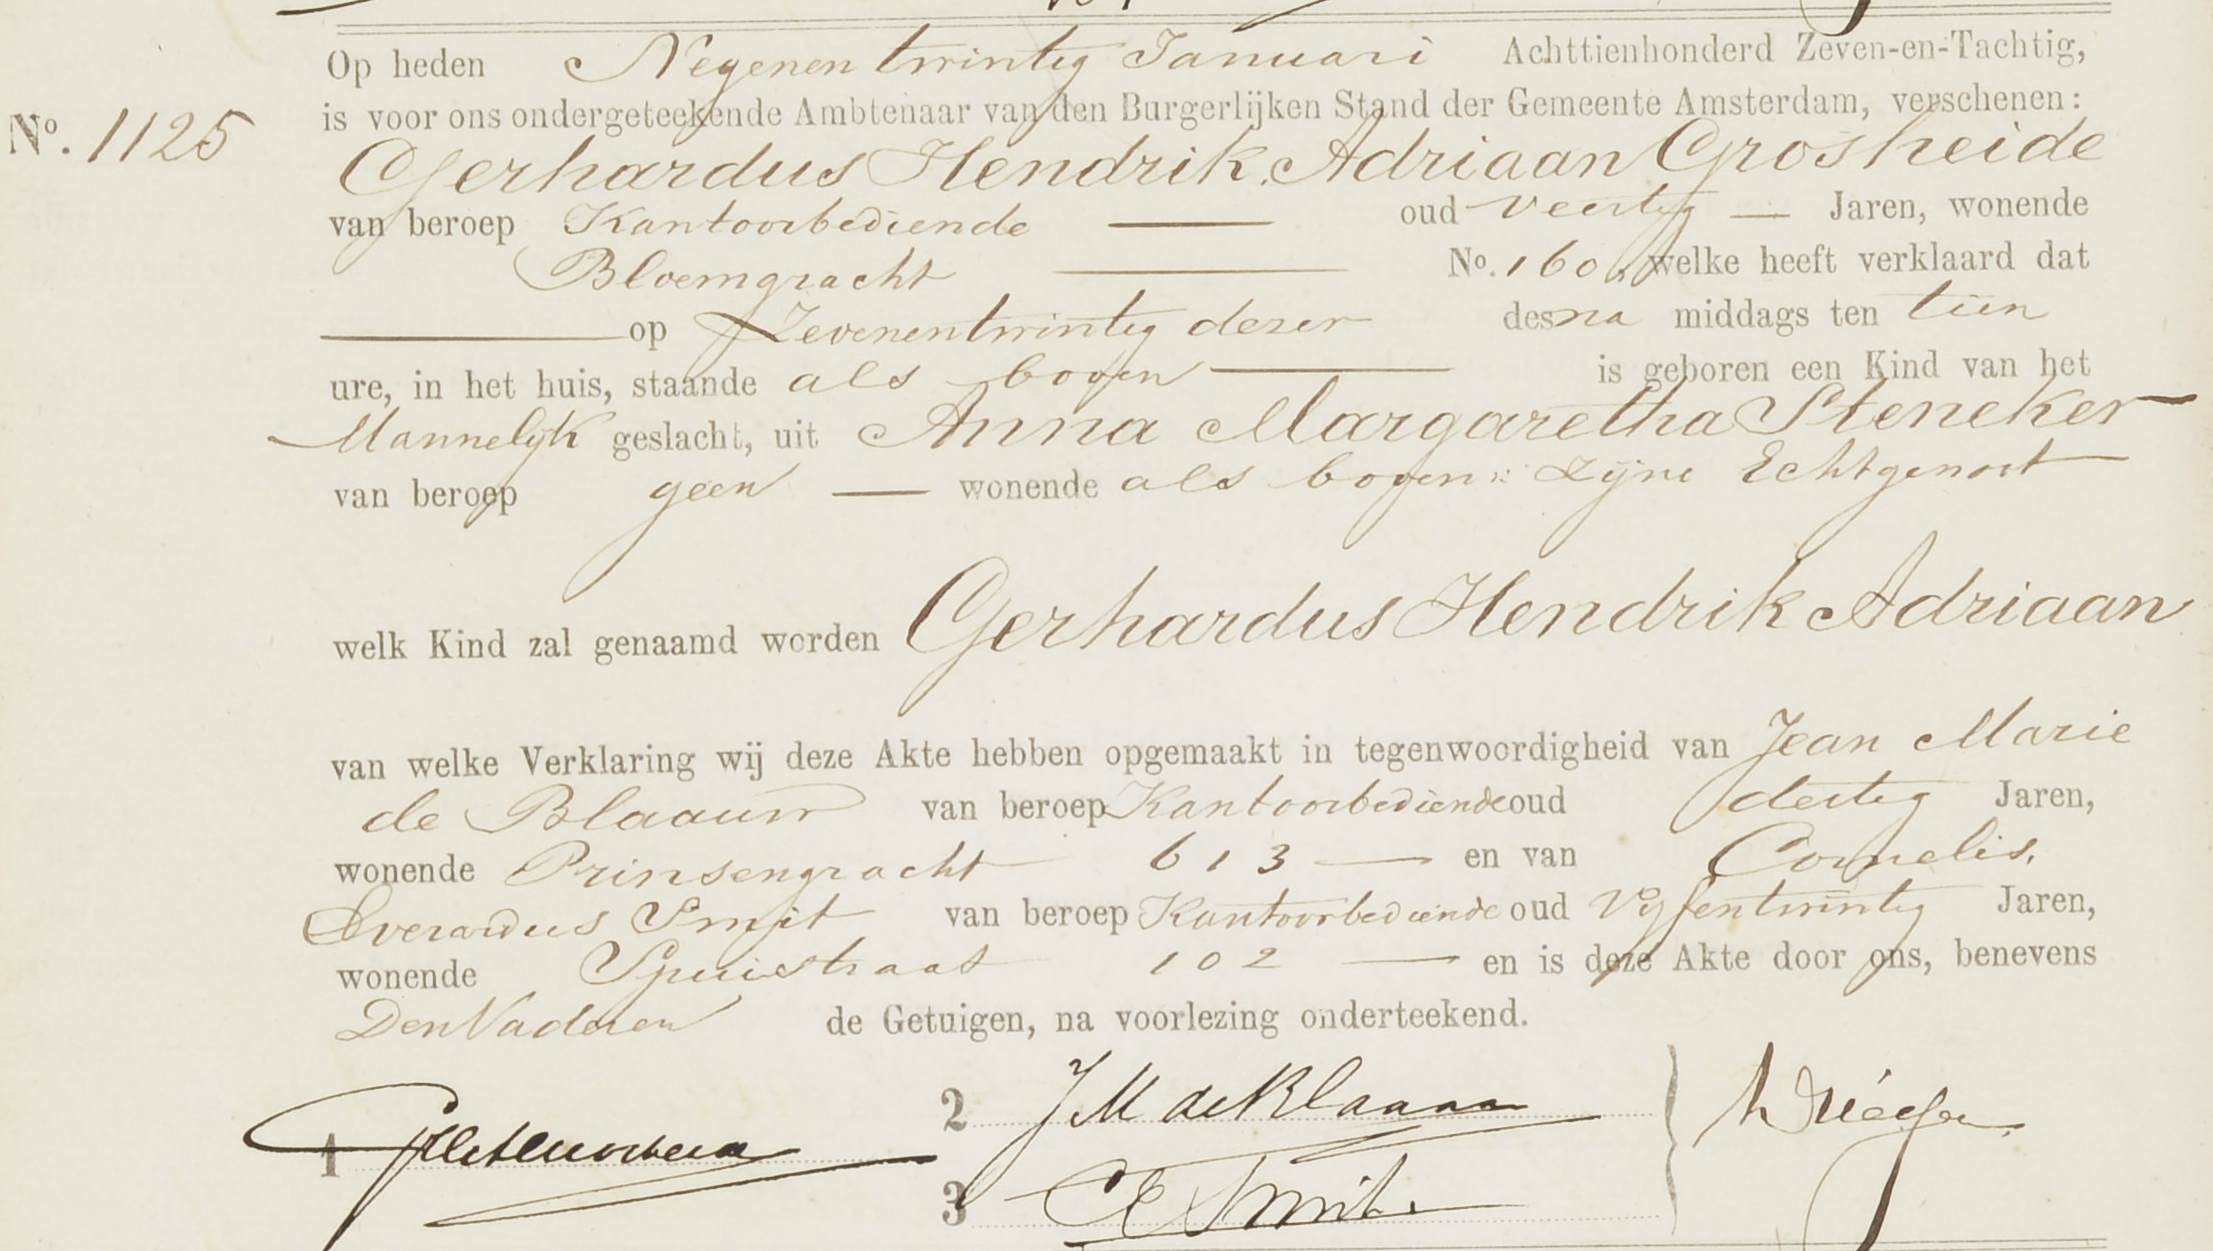 Op heden Negenentwintig Januari Achttienhonderd Zeven-en-Tachtig,
is voor ons ondergeteekende Ambtenaar van den Burgerlijken Stand der Gemeente Amsterdam, verschenen:
No. 1125
Gerhardus Hendrik Adriaan Grosheide
van beroep Kantoorbediende — oud veertig — Jaren, wonende
Bloemgracht — No. 160, welke heeft verklaard dat
— op Zevenentwintig dezer des na middags ten tien
ure, in het huis, staande als boven — is geboren een Kind van het
Mannelijk geslacht, uit Anna Margaretha Steneker
van beroep geen — wonende als boven: zijne Echtgenoot
welk Kind zal genaamd worden Gerhardus Hendrik Adriaan
van welke Verklaring wij deze Akte hebben opgemaakt in tegenwoordigheid van Jean Marie
de Blaauw van beroep Kantoorbediende oud dertig Jaren,
wonende Prinsengracht 613 — en van Cornelis
Everardus Smit van beroep Kantoorbediende oud Vijfentwintig Jaren,
wonende Spuistraat 102 — en is deze Akte door ons, benevens
Den Vader en de Getuigen, na voorlezing onderteekend.
2 JM de Blaauw
1
3 CE Smit